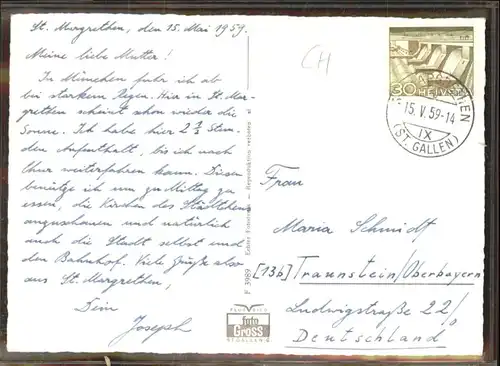 St. Margrethen, den 15. Mai 1959.
Meine liebe Mutter!
In München fuhr ich ab
bei starkem Regen. Hier in St. Mar-
grethen scheint schon wieder die
Sonne. Ich habe hier 2 Stun-
den Aufenthalt, bis ich nach
Chur weiterfahren kann. Diesen
benütze ich um zu Mittag zu
essen, die Kirchen des Städtchens
anzuschauen und natürlich
auch die Stadt selbst und
den Bahnhof. Viele Grüße also
aus St. Margrethen,
Dein
Joseph
CH
30 HELVETIA
15. V. 59-14
IX
(ST. GALLEN)
Frau
Maria Schmidt
[13b] Traunstein/Oberbayern
Ludwigstraße 22/0
Deutschland
F 3989 Echte Fotografie – Reproduktion verboten
FLUGBILD
foto
Gross
ST.GALLEN